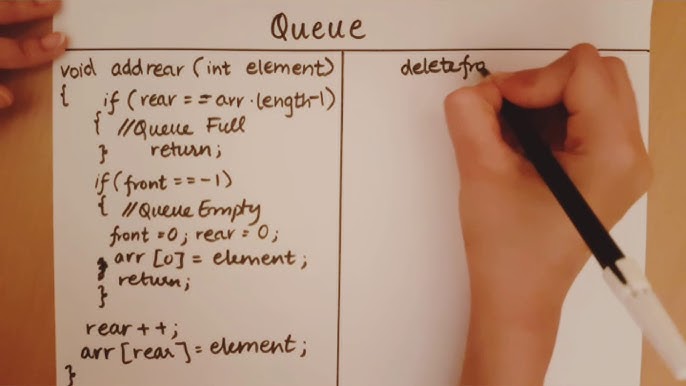 Queue
void addrear (int element)
{ if (rear == arr.length-1)
{ //Queue Full
} return;
if (front == -1)
{ //Queue Empty
front = 0; rear = 0;
arr [0] = element;
return;
}
rear ++;
arr [rear] = element;
}
deletefro